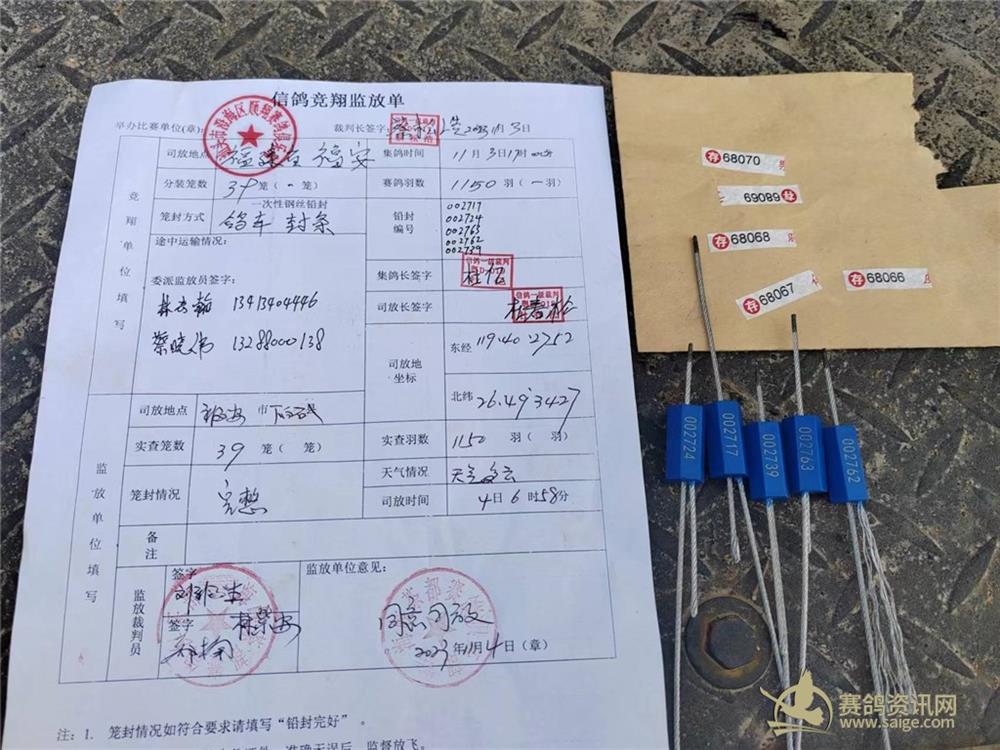 信鸽竞翔监放单
举办比赛单位(章): 裁判长签字: 2023年11月3日
竞翔单位填写
司放地点 福建省 福安 集鸽时间 11月3日17时
分装笼数 39笼(一笼) 赛鸽羽数 1150羽(一羽)
笼封方式 一次性钢丝铅封 鸽车封条
铅封编号
002717
002724
002763
002762
002739
途中运输情况:
集鸽长签字
委派监放员签字:
司放长签字
13413404446
蔡晓伟 13288000138
司放地坐标
东经 119.402752
北纬 26.493427
监放单位填写
司放地点 市
实查笼数 39笼( 笼) 实查羽数 1150羽( 羽)
笼封情况 完整 天气情况 天气多云
司放时间 4日6时58分
备注
监放裁判员
签字
签字
监放单位意见:
同意司放
2023年11月4日(章)
注:1. 笼封情况如符合要求请填写“铅封完好”。
准确无误后,监督放飞。
存68070
69089
存68068
存68067
存68066
002724
002717
002739
002763
002762
赛鸽资讯网
www.saige.com